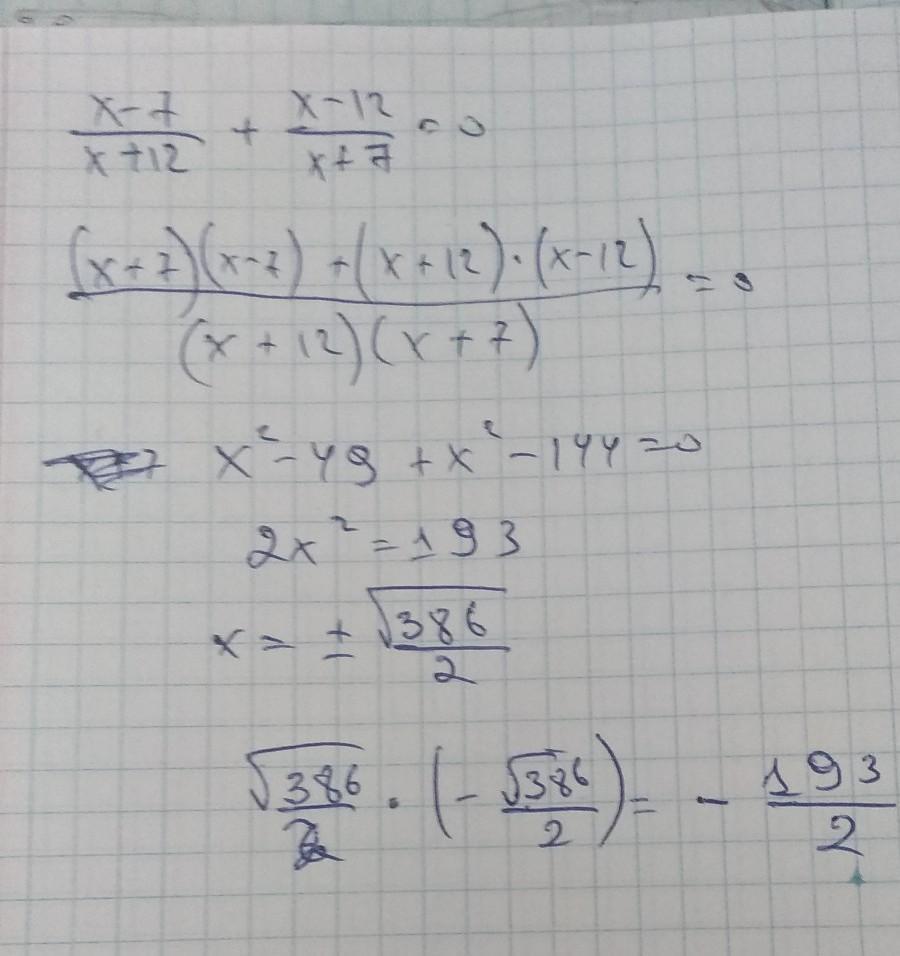 x-7/x+12 + x-12/x+7 = 0
(x+7)(x-7) + (x+12)·(x-12)/(x+12)(x+7) = 0
x²-49 + x²-144=0
2x²=193
x = ± √386/2
√386/2 · (-√386/2) = - 193/2